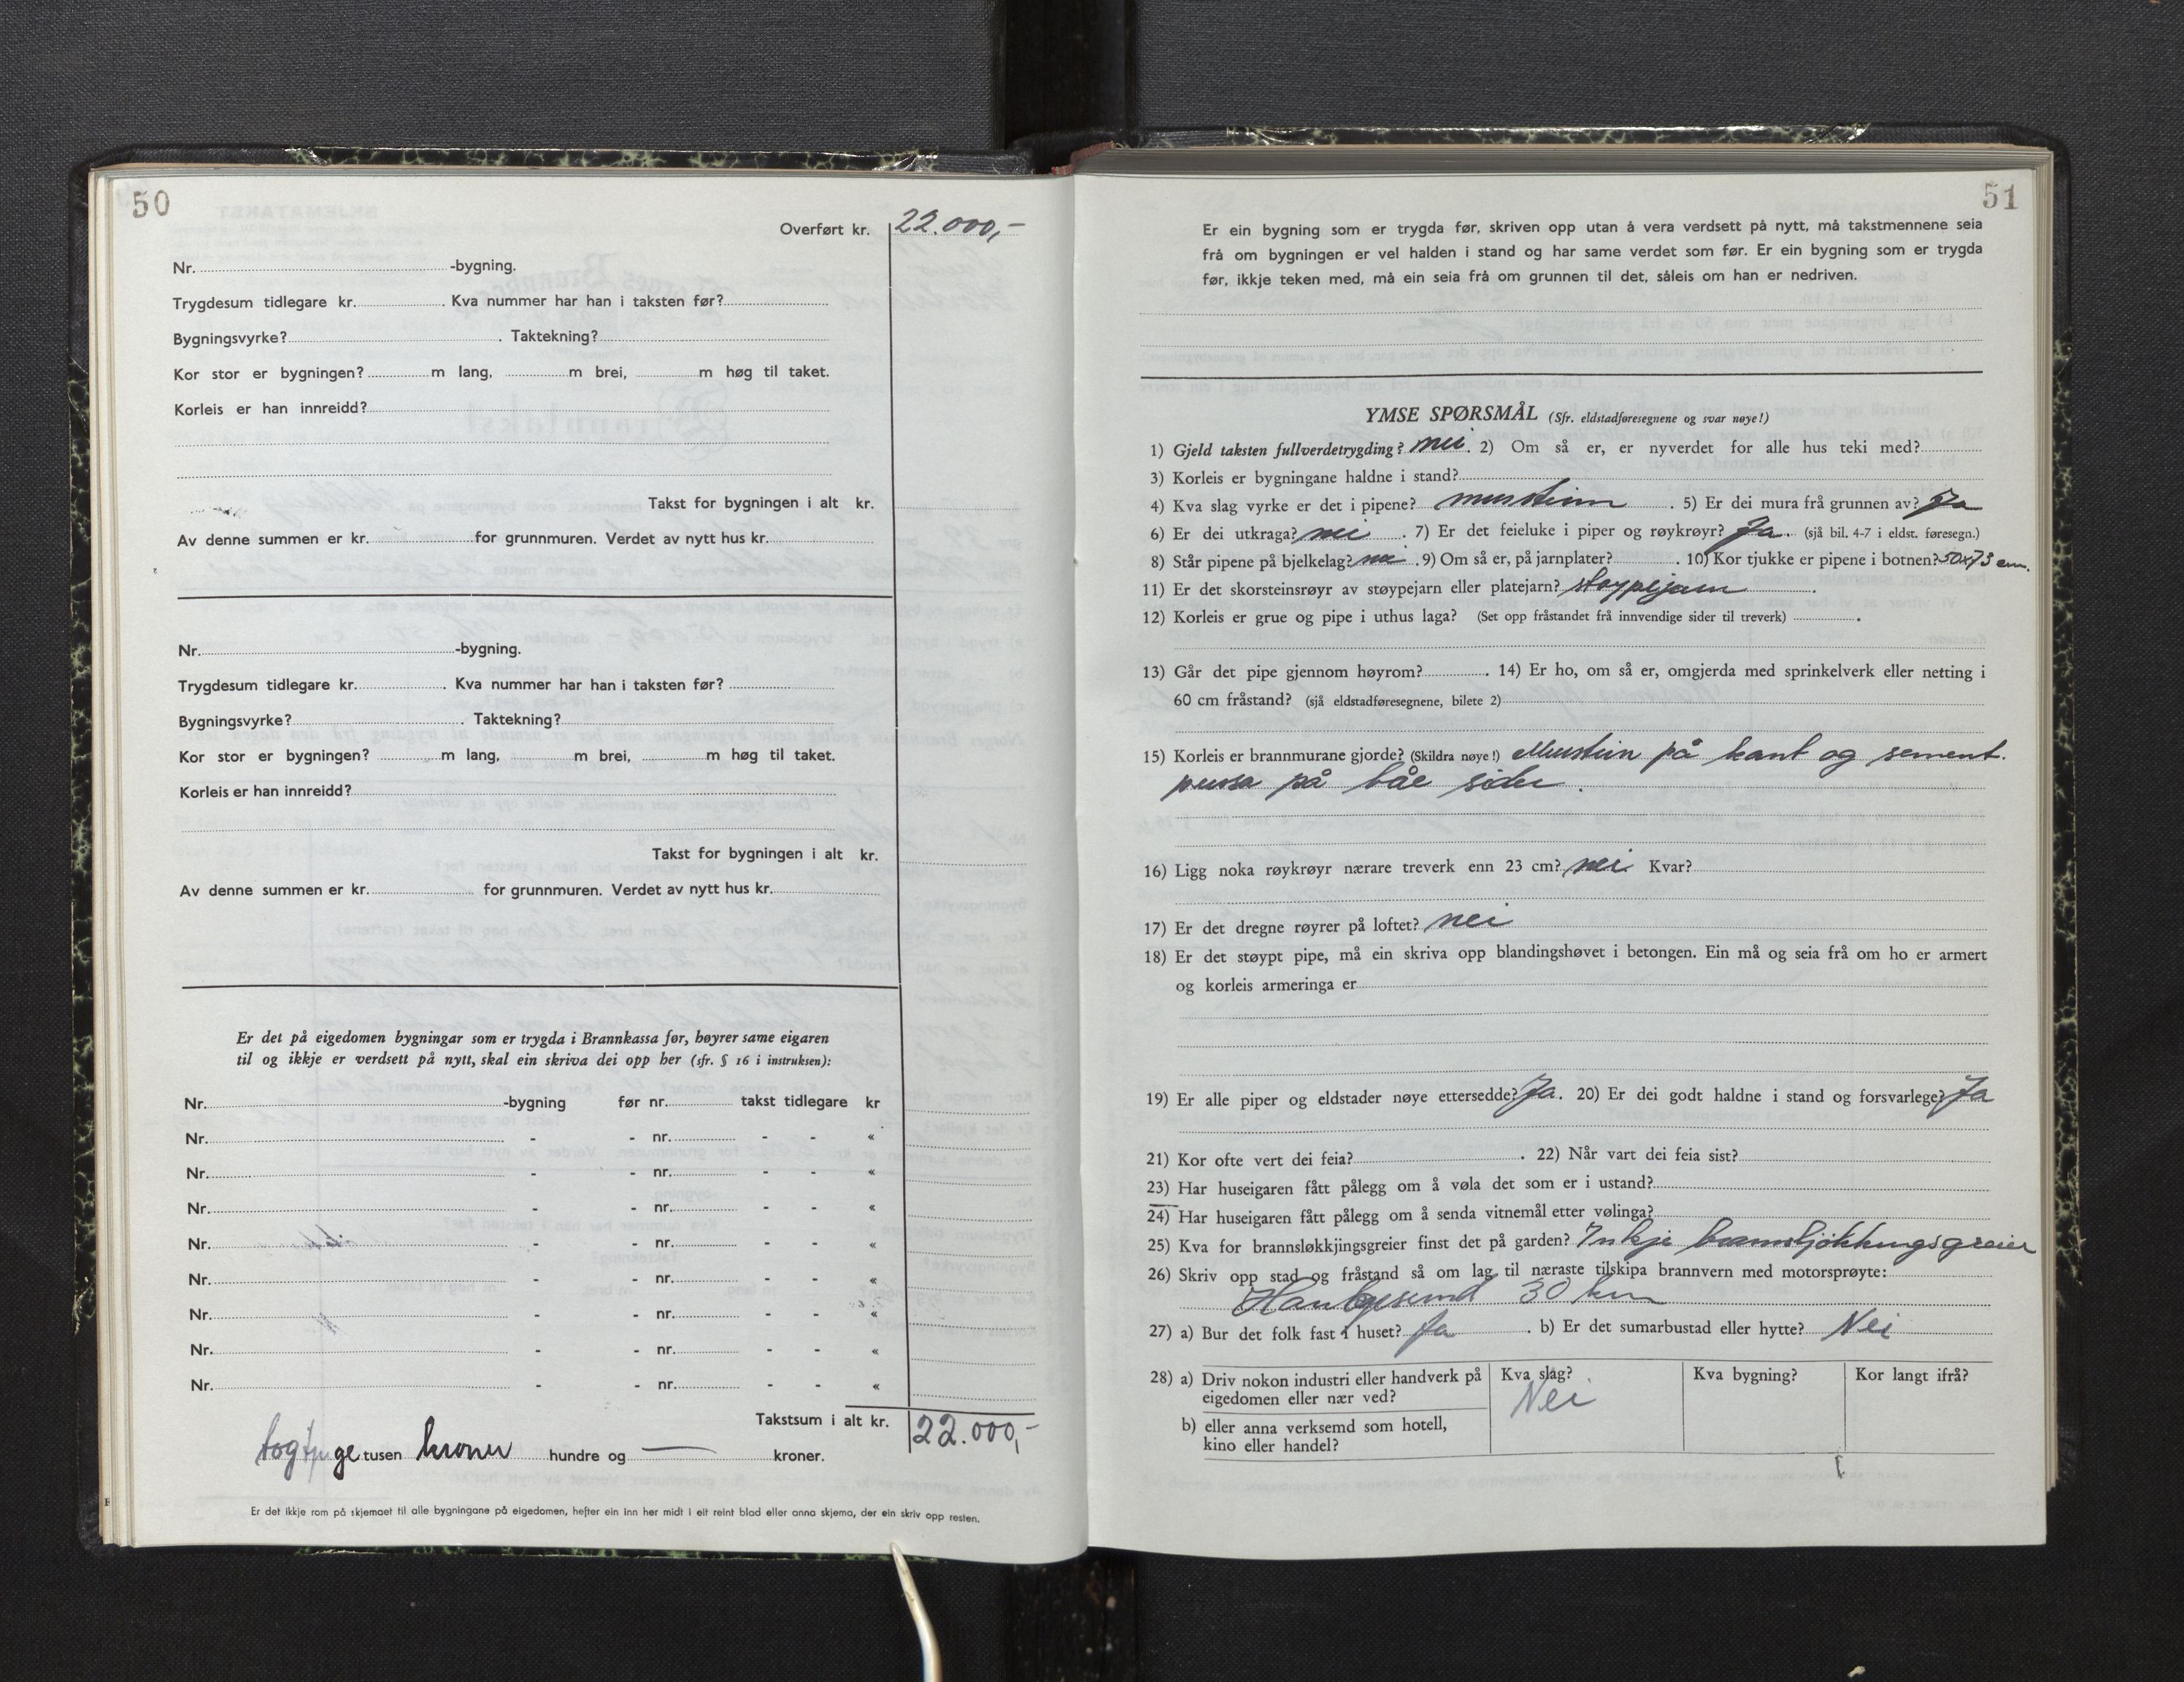 50
Overført kr. 22.000,-
Nr. -bygning.
Trygdesum tidlegare kr. . Kva nummer har han i taksten før?
Bygningsvyrke? . Taktekning?
Kor stor er bygningen? m lang, m brei, m høg til taket.
Korleis er han innreidd?
Takst for bygningen i alt kr.
Av denne summen er kr. for grunnmuren. Verdet av nytt hus kr.
Nr. -bygning.
Trygdesum tidlegare kr. . Kva nummer har han i taksten før?
Bygningsvyrke? . Taktekning?
Kor stor er bygningen? m lang, m brei, m høg til taket.
Korleis er han innreidd?
Takst for bygningen i alt kr.
Av denne summen er kr. for grunnmuren. Verdet av nytt hus kr.
Er det på eigedomen bygningar som er trygda i Brannkassa før, høyrer same eigaren
til og ikkje er verdsett på nytt, skal ein skriva dei opp her (sfr. § 16 i instruksen):
Nr. -bygning før nr. takst tidlegare kr
Nr. - - nr. - - «
Nr. - - nr. - - «
Nr. - - nr. - - «
Nr. - - nr. - - «
Nr. - - nr. - - «
Nr. - - nr. - - «
Nr. - - nr. - - «
Nr. - - nr. - - «
Takstsum i alt kr. 22.000,-
togtjuge tusen kroner hundre og — kroner.
Er det ikkje rom på skjemaet til alle bygningane på eigedomen, hefter ein inn her midt i eit reint blad eller anna skjema, der ein skriv opp resten.
51
Er ein bygning som er trygda før, skriven opp utan å vera verdsett på nytt, må takstmennene seia
frå om bygningen er vel halden i stand og har same verdet som før. Er ein bygning som er trygda
før, ikkje teken med, må ein seia frå om grunnen til det, såleis om han er nedriven.
YMSE SPØRSMÅL (Sfr. eldstadføresegnene og svar nøye!)
1) Gjeld taksten fullverdetrygding? nei. 2) Om så er, er nyverdet for alle hus teki med?
3) Korleis er bygningane haldne i stand?
4) Kva slag vyrke er det i pipene? murstein . 5) Er dei mura frå grunnen av? Ja
6) Er dei utkraga? nei . 7) Er det feieluke i piper og røykrøyr? Ja. (sjå bil. 4-7 i eldst. føresegn.)
8) Står pipene på bjelkelag? nei . 9) Om så er, på jarnplater? . 10) Kor tjukke er pipene i botnen? 50x73 cm.
11) Er det skorsteinsrøyr av støypejarn eller platejarn? støypejarn .
12) Korleis er grue og pipe i uthus laga? (Set opp fråstandet frå innvendige sider til treverk) .
13) Går det pipe gjennom høyrom? . 14) Er ho, om så er, omgjerda med sprinkelverk eller netting i
60 cm fråstand? (sjå eldstadføresegnene, bilete 2)
15) Korleis er brannmurane gjorde? (Skildra nøye!) Murstein på kant og sement.
pussa på båe sider.
16) Ligg noka røykrøyr nærare treverk enn 23 cm? nei Kvar?
17) Er det dregne røyrer på loftet? nei
18) Er det støypt pipe, må ein skriva opp blandingshøvet i betongen. Ein må og seia frå om ho er armert
og korleis armeringa er
19) Er alle piper og eldstader nøye ettersedde? Ja. 20) Er dei godt haldne i stand og forsvarlege? Ja
21) Kor ofte vert dei feia? . 22) Når vart dei feia sist?
23) Har huseigaren fått pålegg om å vøla det som er i ustand?
24) Har huseigaren fått pålegg om å senda vitnemål etter vølinga?
25) Kva for brannsløkkjingsgreier finst det på garden? Inkje brannsljökkingsgreier
26) Skriv opp stad og fråstand så om lag til næraste tilskipa brannvern med motorsprøyte:
Haugesund 30 km
27) a) Bur det folk fast i huset? Ja . b) Er det sumarbustad eller hytte? Nei
28) a) Driv nokon industri eller handverk på Kva slag? Kva bygning? Kor langt ifrå?
eigedomen eller nær ved? Nei
b) eller anna verksemd som hotell,
kino eller handel?